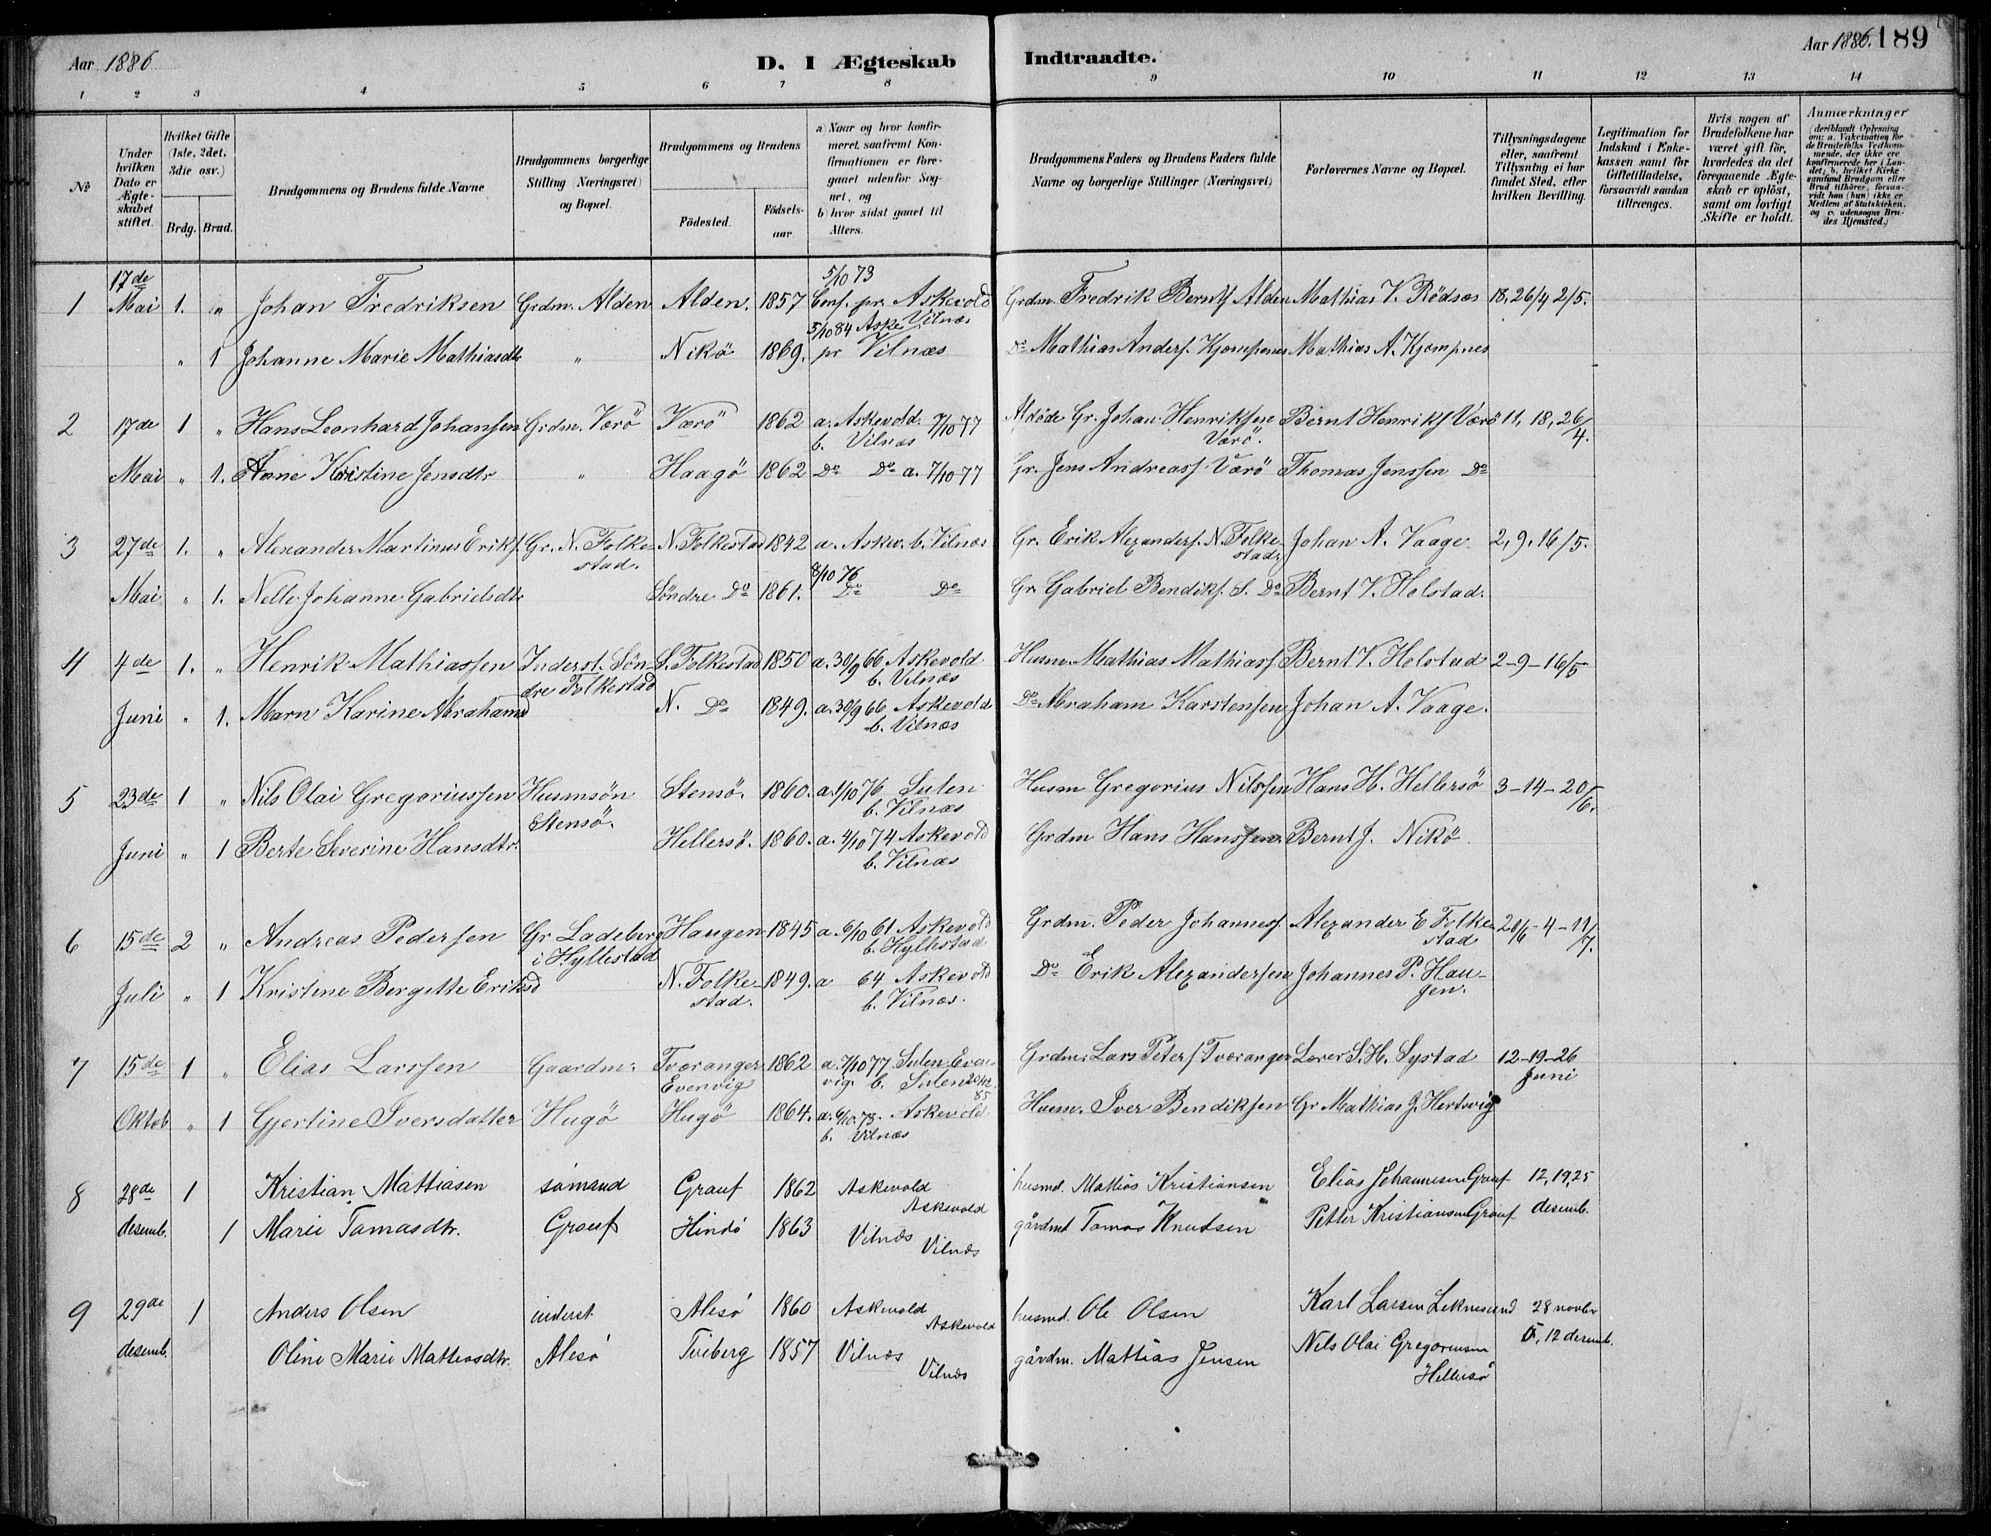 Aar 1886
D. I Ægteskab
Indtraadte.
Aar 1886. 189
1 2 3 4 5 6 7 8 9 10 11 12 13 14
№
Under hvilken Dato er Ægteskabet stiftet.
Hvilket Gifte (1ste, 2det, 3die osv.)
Brdg. Brud.
Brudgommens og Brudens fulde Navne
Brudgommens borgerlige Stilling (Næringsvei) og Bopæl.
Brudgommens og Brudens
Fødested.
Fødselsaar.
a) Naar og hvor konfirmeret, saafremt Konfirmationen er foregaaet udenfor Sognet, og
b) hvor sidst gaaet til Alters.
Brudgommens Faders og Brudens Faders fulde Navne og borgerlige Stillinger (Næringsvei)
Forlovernes Navne og Bopæl.
Tillysningsdagene eller, saafremt Tillysning ei har fundet Sted, efter hvilken Bevilling.
Legitimation for Indskud i Enkekassen samt for Giftetilladelse, forsaavidt saadan tiltrænges.
Hvis nogen af Brudefolkene har været gift før, hvorledes da det foregaaende Ægteskab er opløst, samt om lovligt Skifte er holdt.
Anmærkninger
(deriblandt Oplysning om: a. Vakcination for de Brudefolks Vedkommende, der ikke ere konfirmerede her i Landet; b. hvilket Kirkesamfund Brudgom eller Brud tilhører, forsaavidt han (hun) ikke er Medlem af Statskirken, og c. udensogns Brudes Hjemsted.)
1 17de Mai 1. " Johan Fredriksen Grdm. Alden Alden. 1857 5/10 73 Conf. pr. Askevold Vilnæs Grdm. Fredrik Berntſ Alden Mathias V. Rödsæs 18, 26/4 2/5.
" 1 Johanne Marie Mathiasdtr " Nikö 1869. 5/10 84 Aske pr Vilnæs Do Mathias Andersſ. Kjompenes Mathias A. Kjompnes
2 17de 1 " Hans Leonhard Johansſen Grdm. Værö Værö 1862 a. Askevold 7/10 77 b. Vilnæs Afdöde Gr. Johan Henriksſen Værö. Bernt Henriksſ Værö 11, 18, 26/4.
Mai " 1. Anne Kristine Jensdtr " Haagö 1862 Do Do a. 7/10 77 Gr. Jens Andreasſ Værö Thomas Jensſen Do
3 27de 1. " Alexander Martinus Eriksſ. Gr. N. Folkestad. N. Folkestad 1842 a. Askev. b. Vilnæs Gr. Erik Alexandersſ. N Folkestad. Johan A. Vaage 2, 9, 16/5.
Mai. " 1. Nelle Johanne Gabrielsdtr Söndre Do 1861. 8/10 76 Do Do Gr Gabriel Bendiksſ. S. Do Bernt V. Holstad.
4 4de 1. " Henrik Mathiasſen Inderst. Söndre Folkestad S. Folkestad 1850 a. 30/9 66 Askevold b. Vilnæs Husm. Mathias Mathiasſ Bernt V. Holstad 2-9-16/5
Juni " 1. Marn Karine Abrahamsd N. Do 1849. a. 30/9 66 Askevold b. Vilnæs Do Abraham Karstensſen Johan A. Vaage.
5 23de 1 " Nils Olai Gregoriusſen Husmsön Stensö. Stensö. 1860. a. 1/10 76 Sulen b. Vilnæs Husm Gregorius Nilsſen Hans H. Hellersö 3-14-20/6.
Juni " 1 Berte Severine Hansdtr. Hellersö. 1860. a. 4/10 74 Askevold b. Vilnæs Grdm Hans Hansſen. Bernt J. Nikö
6 15de 2 " Andreas Pedersſen Gr Ladeberg i Hyllestad Haugen 1845 a 6/10 61 Askevold b. Hyllestad Grdm. Peder Johannesſ. Alexander E Folkestad 20/6-4-11/7.
Juli " 1 Kristine Bergitte Eriksd N. Folkestad. 1849. a 64 Askevold b. Vilnæs. Do Erik Alexandersſen Johannes P. Haugen.
7 15de 1 " Elias Larsſen Gaardm. Tværanger Evenvig 1862 a. 7/10 77 Sulen Evenvig b. Sulen 20/12 85 Grdm. Lars Petersſ Tværanger Lærer S. H. Systad 12-19-26 Juni
Oktob " 1 Gjertine Iversdatter Hugö Hugö 1864. a. 6/10 78. Askevold b. Vilnæs Husm. Iver Bendiksſen Gr Mathias J. Hertsvig
8 28de 1 Kristian Mattiasen sömand Grauf 1862 Askevold Askevold husmd. Mattias Kristiansen Elias Johannesen Grauf 12, 19, 25
desemb. 1 Marie Tomasdtr. Grauf Hindö 1863 Vilnæs Vilnæs gårdmd. Tomas Knutsen Petter Kristiansen Grauf desemb.
9 29de 1 Anders Olsen inderst. Alesö 1860 Askevold Askevold husmd. Ole Olsen Karl Larsen Leknesund 28 novbr
desemb. Oline Marie Mattiasdtr. Alesö Tviberg 1857 Vilnæs Vilnæs gårdm. Mattias Jensen Nils Olai Gregoriusen Hellersö 5, 12 desemb.